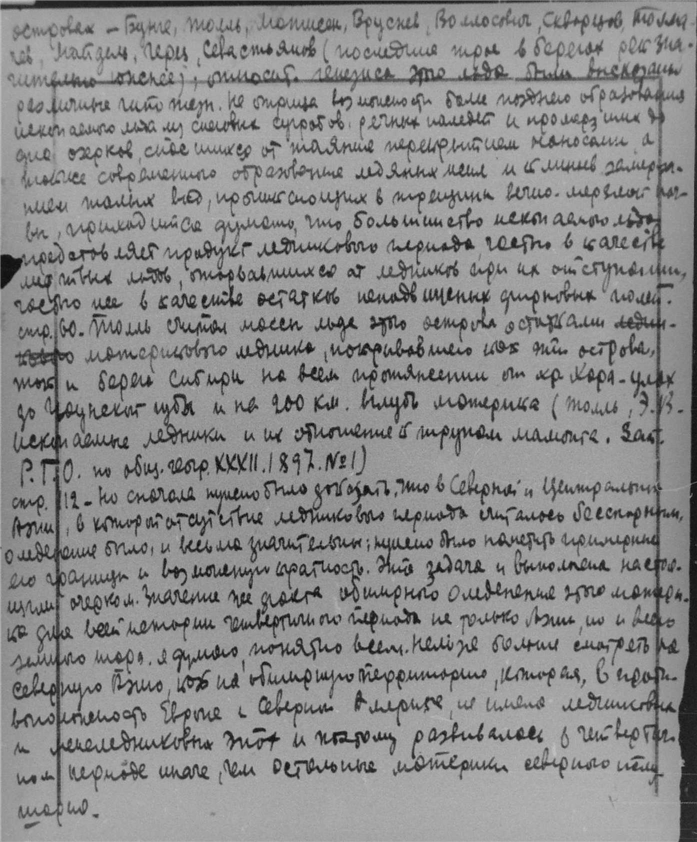 островах – Бунге, Толль, Матисен, Бруснев, Воллосович, Скворцов, Толма-
чев, Майдель, Герц, Севастьянов (последние трое в берегах рек зна-
чительно южнее), относит. генезиса этого льда были высказаны
различные гипотезы. Не отрицая возможности более позднего образования
ископаемого льда из снеговых сугробов, речных наледей и промерзших до
дна озерков, спасшихся от таяния перекрытием наносами, а
также современного образования ледяных жил и клиньев замерза-
нием талых вод, проникающих в трещины вечно-мерзлой поч-
вы, приходится думать, что большинство ископаемого льда
представляет продукт ледникового периода, частью в качестве
мертвых льдов, оторвавшихся от ледников при их отступании,
частью же в качестве остатков неподвижных фирновых полей.
стр. 60. Толль считал массы льда этого острова остатками ледни-
кового материкового ледника, покрывавшего как эти острова,
так и берега Сибири на всем протяжении от хр. Хара-улах
до Чаунской губы и на 200 км. вглубь материка (Толль, Э.В.
Ископаемые ледники и их отношение к трупам мамонта. Зап.
Р.Г.О. по общ. геогр. XXXII. 1897. №1)
стр. 112 – Но сначала нужно было доказать, что в Северной и Центральной
Азии, в которой отсутствие ледникового периода считалось бесспорным,
оледенение было, и весьма значительным; нужно было наметить примерные
его границы и возможную кратность. Эта задача и выполнена настоя-
щим очерком. Значение же факта обширного оледенения этого матери-
ка для всей истории четвертичного периода не только Азии, но и всего
земного шара, я думаю, понятно всем. Нельзя больше смотреть на
северную Азию, как на обширную территорию, которая, в проти-
воположность Европе и Северной Америке, не имела ледниковых
и межледниковых эпох и поэтому развивалась в четвертич-
ном периоде иначе, чем остальные материки северного полу-
шария.